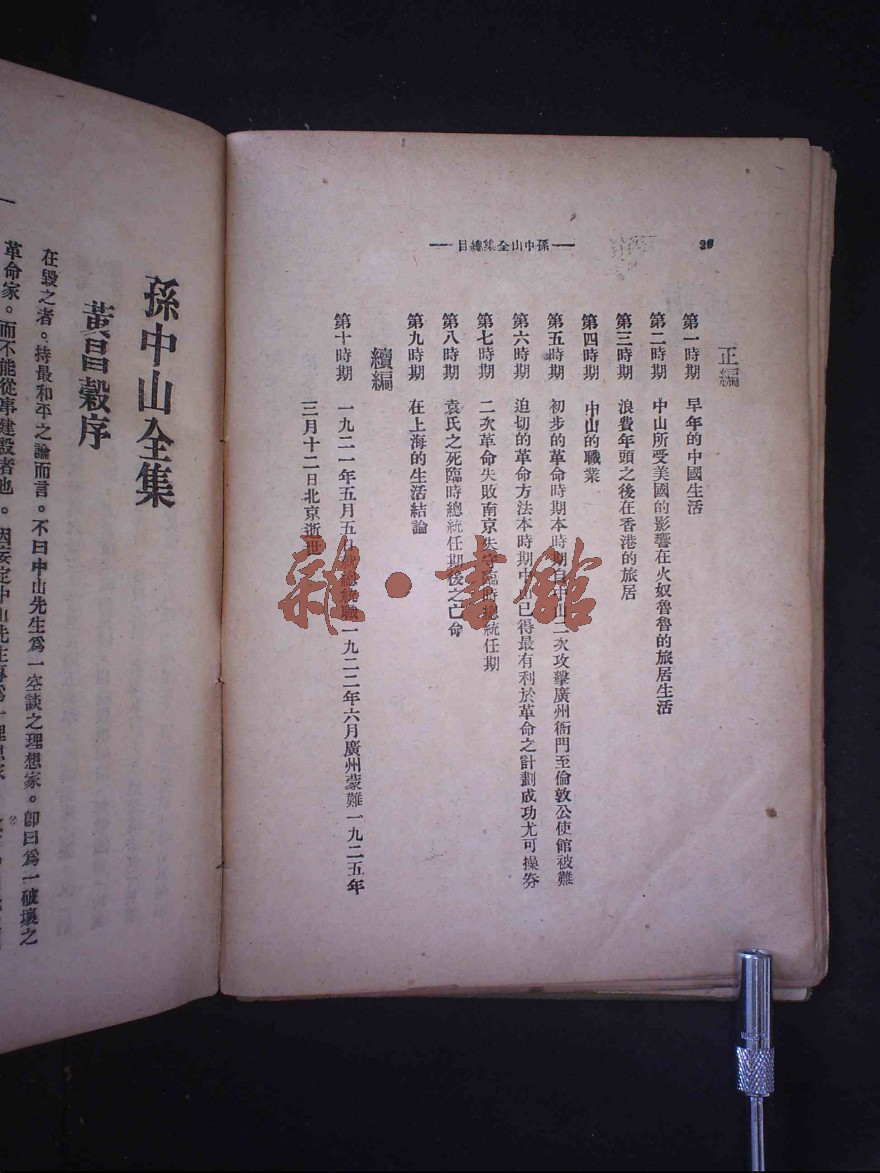 20
—孫中山全集總目—
正編
第一時期 早年的中國生活
第二時期 中山所受美國的影響在火奴魯魯的旅居生活
第三時期 浪費年頭之後在香港的旅居
第四時期 中山的職業
第五時期 初步的革命時期本時期自中山二次攻擊廣州衙門至倫敦公使館被難
第六時期 迫切的革命方法本時期中山已得最有利於革命之計劃成功尤可操券
第七時期 二次革命失敗南京失守臨時總統任期
第八時期 袁氏之死臨時總統任期後之亡命
第九時期 在上海的生活結論
續編
第十時期 一九二一年五月五日就總統職一九二二年六月廣州蒙難一九二五年
三月十二日北京逝世
雜·書館
孫中山全集
黃昌穀序
在毀之者。持最和平之論而言。不曰中山先生爲一空談之理想家。卽曰爲一破壞之
革命家。而不能從事建設者也。因妄定中山先生
一